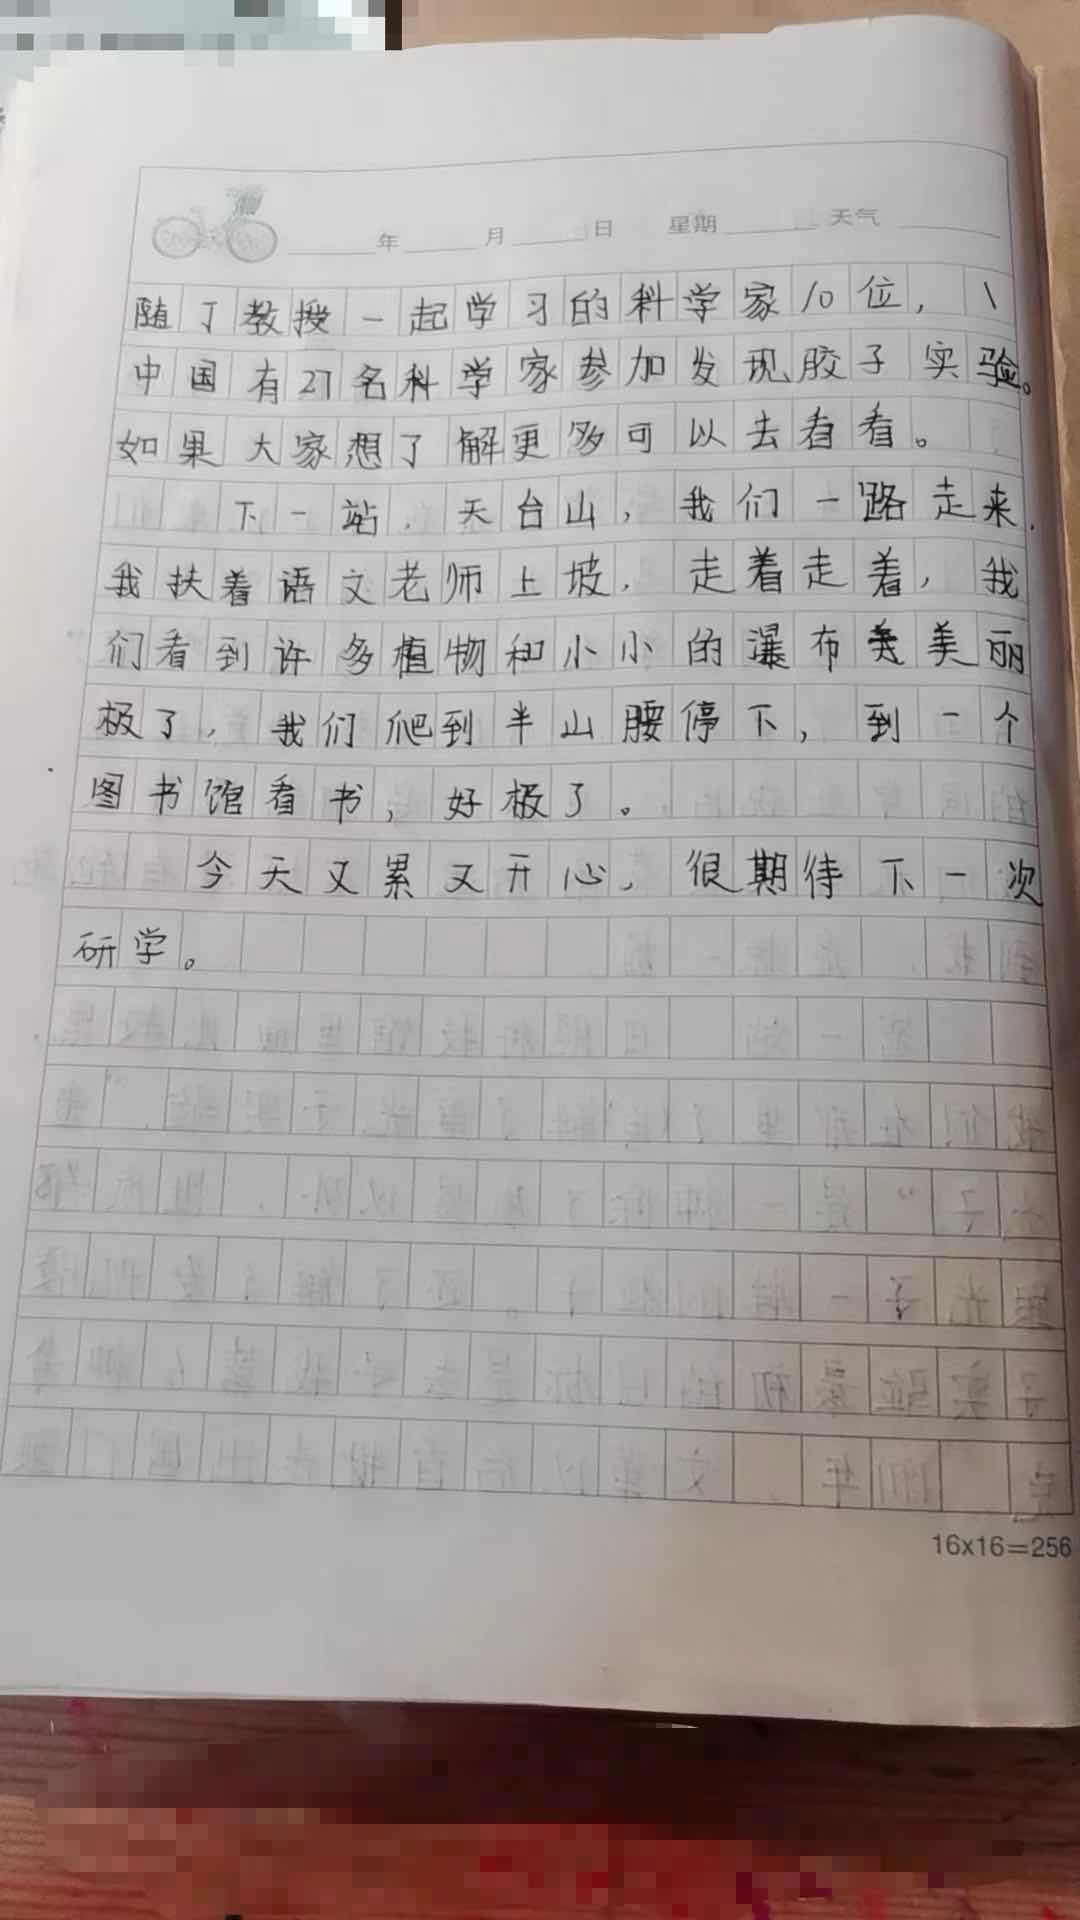 年 月 日 星期 天气
随丁教授一起学习的科学家10位，\
中国有27名科学家参加发现胶子实验。
如果大家想了解更多可以去看看。
下一站，天台山，我们一路走来，
我扶着语文老师上坡，走着走着，我
们看到许多植物和小小的瀑布美美丽
极了，我们爬到半山腰停下，到一个
图书馆看书，好极了。
今天又累又开心，很期待下一次
研学。
16x16=256